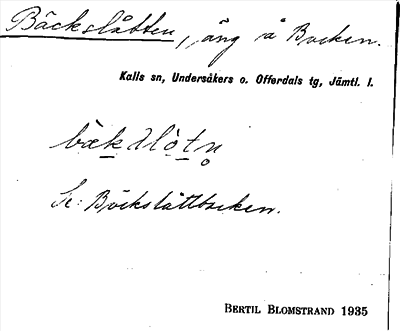 Bäckslåtten, äng å Backen.
Kalls sn, Undersåkers o. Offerdals tg, Jämtl. l.
Se: Bäckslåttbacken.
BERTIL BLOMSTRAND 1935